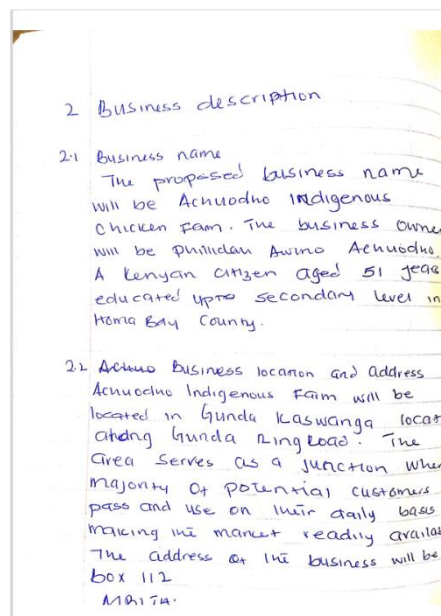 2 Business description
2.1 Business name
The proposed business name
will be Achuodho Indigenous
Chicken Farm. The business owne
will be Phillidah Awino Achuodho
A Kenyan citizen aged 51 years
educated upto secondary level in
Homa Bay County.
2.2 Achuo Business location and address
Achuodho Indigenous Farm will be
located in Gunda Kaswanga locat
along Gunda Ring Road. The
area serves as a junction wher
majority of potential customers
pass and use on their daily basis
making the market readily availab
The address of the business will be
box 112
MBITA.